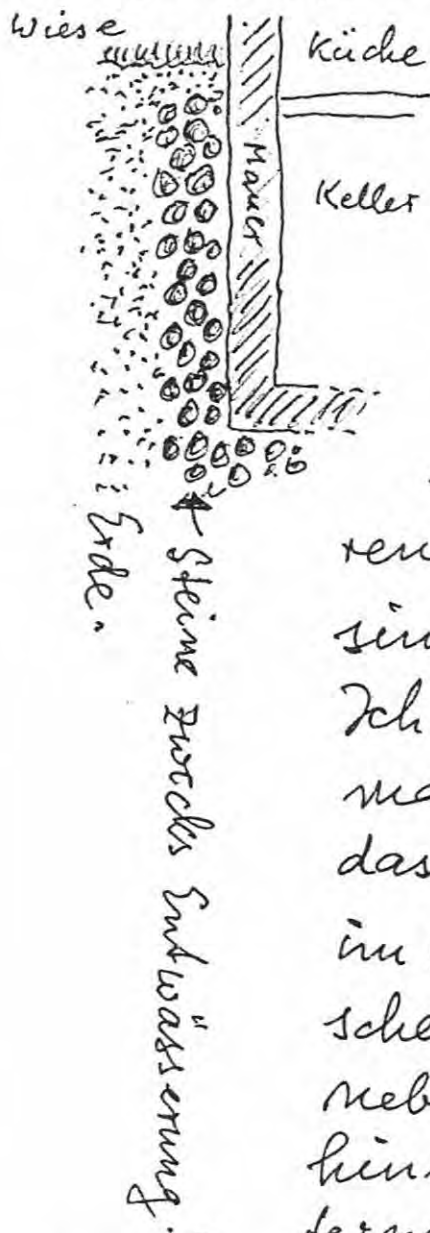 Wiese
Küche
Mauer
Keller
Erde.
Steine zwecks Entwässerung.
ren
sin
Ich
ma
das
im
sche
neb
hin